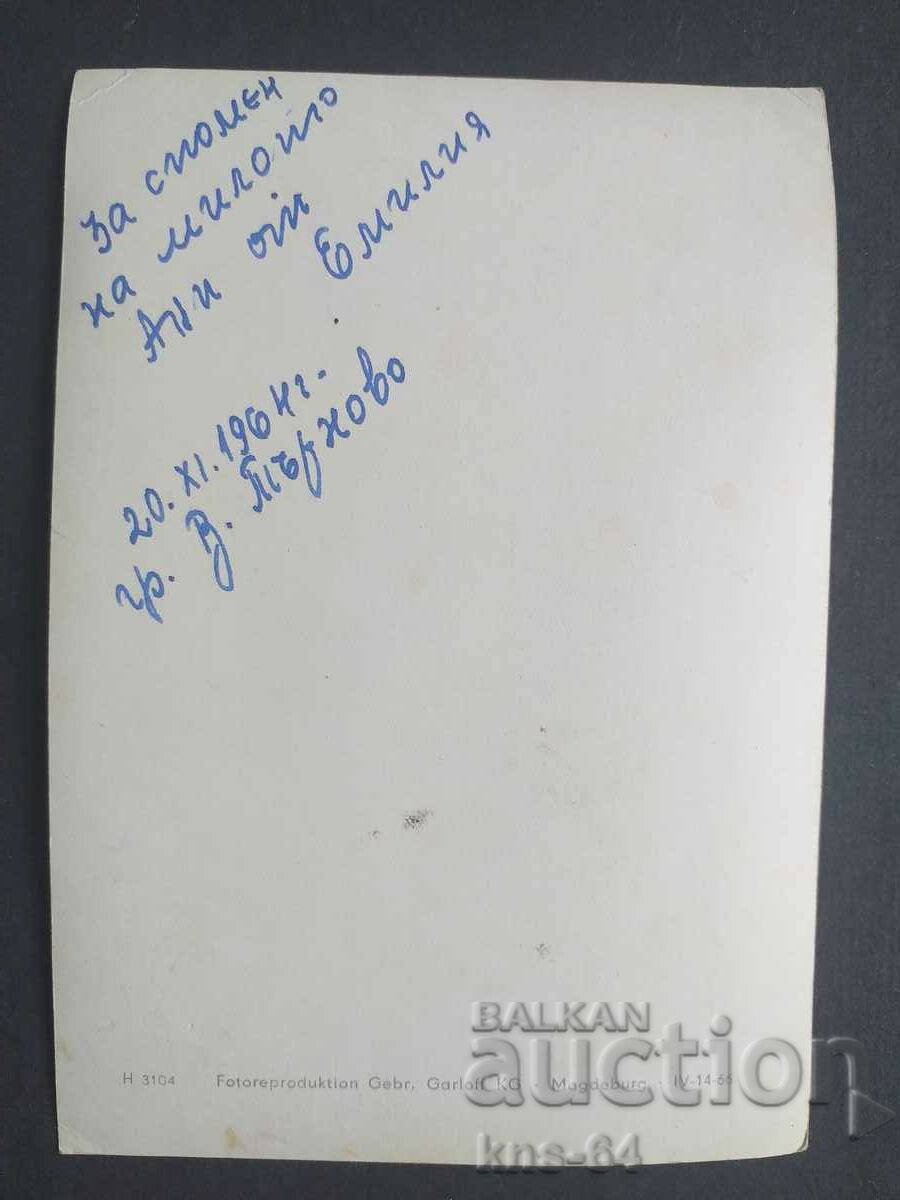 За спомен
на милото
Ани от
Емилия
20. XI. 1964 г.
гр. В. Търново
H 3104 Fotoreproduktion Gebr. Garloff KG · Magdeburg · IV-14-66
BALKAN
auction
kns-64